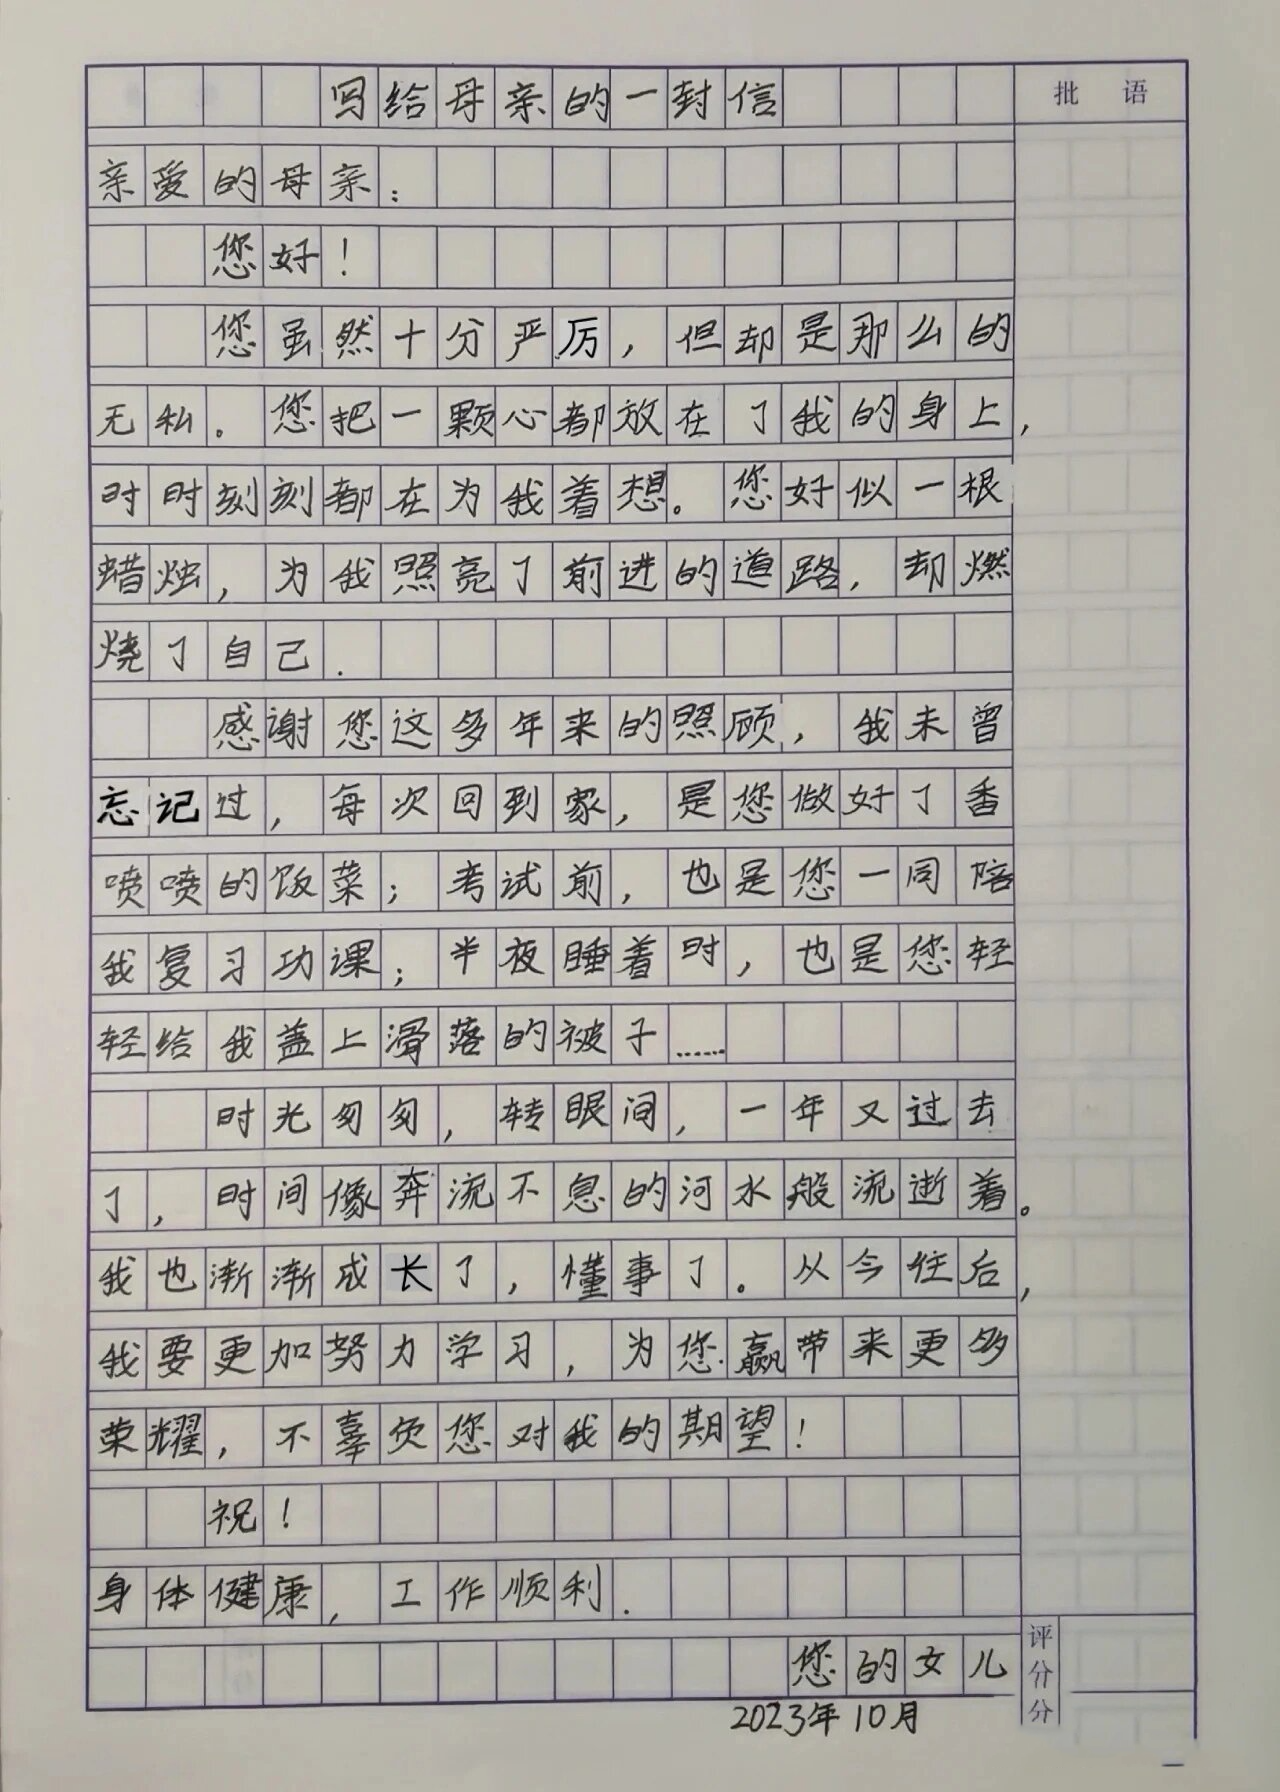 写给母亲的一封信
批 语
亲爱的母亲：
您好！
您虽然十分严厉，但却是那么的
无私。您把一颗心都放在了我的身上，
时时刻刻都在为我着想。您好似一根
蜡烛，为我照亮了前进的道路，却燃
烧了自己.
感谢您这多年来的照顾，我未曾
忘记过，每次回到家，是您做好了香
喷喷的饭菜；考试前，也是您一同陪
我复习功课；半夜睡着时，也是您轻
轻给我盖上滑落的被子……
时光匆匆，转眼间，一年又过去
了，时间像奔流不息的河水般流逝着。
我也渐渐成长了，懂事了。从今往后，
我要更加努力学习，为您赢带来更多
荣耀，不辜负您对我的期望！
祝！
身体健康，工作顺利.
您的女儿
评分分
2023年10月